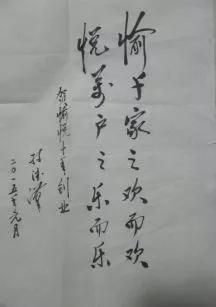 愉千家之欢而欢
悦万户之乐而乐
贺愉悦十年创业
二〇一五年元月